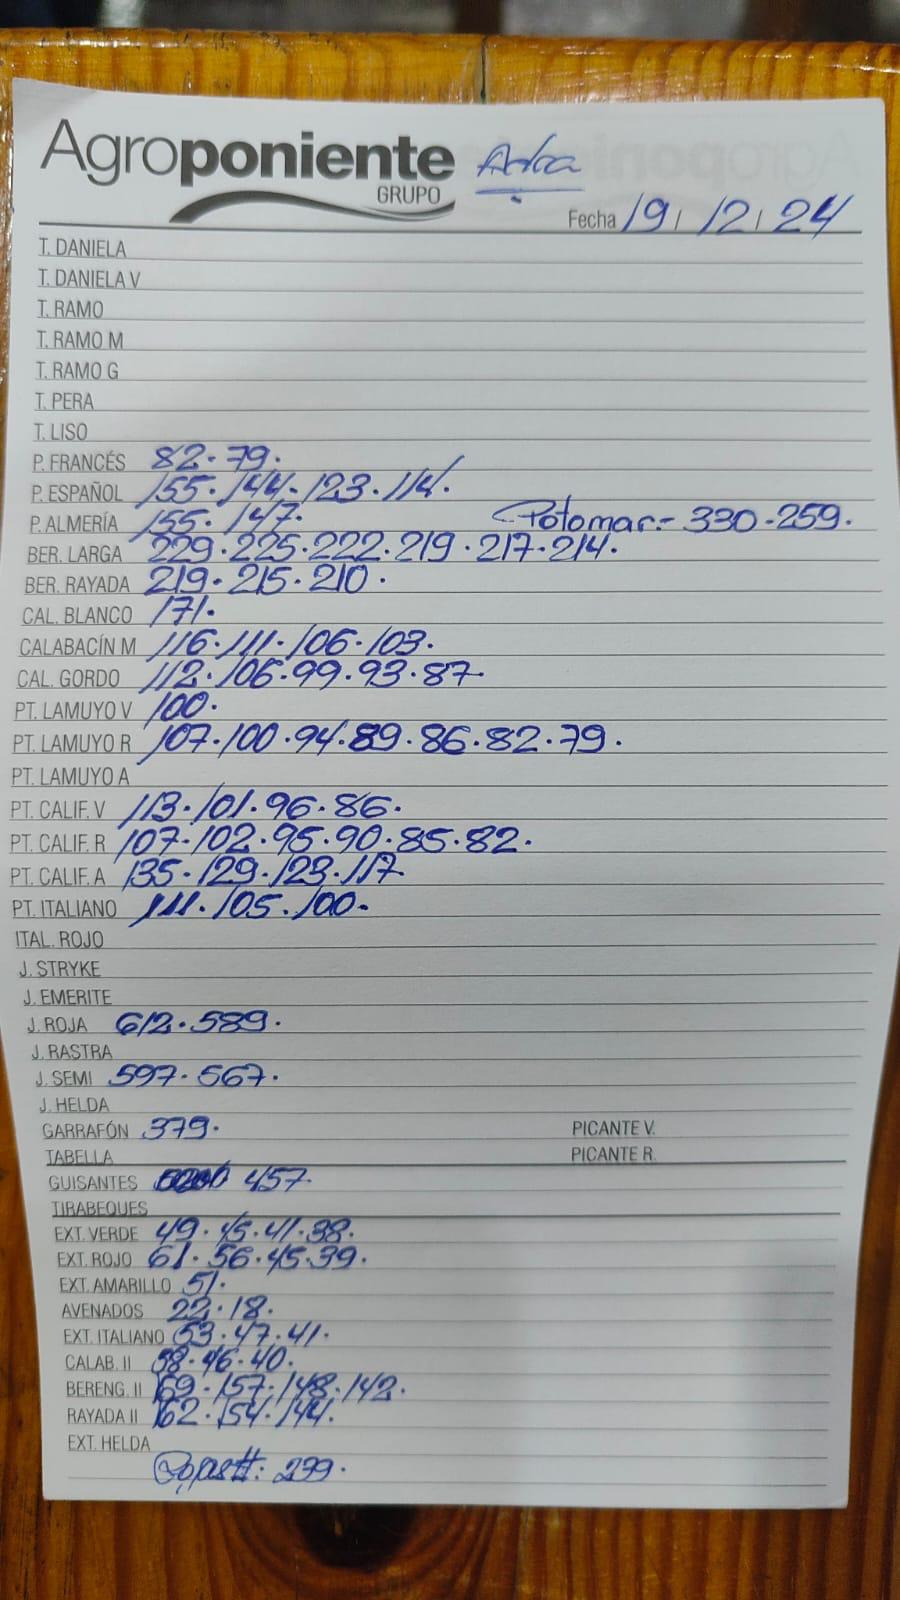 Agroponiente Adra
GRUPO
Fecha 19 / 12 / 24
T. DANIELA
T. DANIELA V
T. RAMO
T. RAMO M
T. RAMO G
T. PERA
T. LISO
P. FRANCÉS 82. 79.
P. ESPAÑOL 155. 144. 123. 114.
P. ALMERÍA 155. 147. Potomac.- 330-259.
BER. LARGA 229. 225. 222. 219. 217. 214.
BER. RAYADA 219. 215. 210.
CAL. BLANCO 171.
CALABACÍN M 116. 111. 106. 103.
CAL. GORDO 112. 106. 99. 93. 87.
PT. LAMUYO V 100.
PT. LAMUYO R 107. 100. 94. 89. 86. 82. 79.
PT. LAMUYO A
PT. CALIF. V 113. 101. 96. 86.
PT. CALIF. R 107. 102. 95. 90. 85. 82.
PT. CALIF. A 135. 129. 123. 117.
PT. ITALIANO 111. 105. 100.
ITAL. ROJO
J. STRYKE
J. EMERITE
J. ROJA 612. 589.
J. RASTRA
J. SEMI 597. 567.
J. HELDA
GARRAFÓN 379. PICANTE V.
TABELLA PICANTE R.
GUISANTES 457.
TIRABEQUES
EXT. VERDE 49. 45. 41. 38.
EXT. ROJO 61. 56. 45. 39.
EXT. AMARILLO 51.
AVENADOS 22. 18.
EXT. ITALIANO 53. 47. 41.
CALAB. II 58. 46. 40.
BERENG. II 169. 157. 148. 142.
RAYADA II 162. 154. 144.
EXT. HELDA
239.